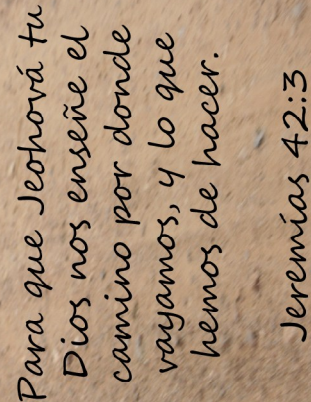 Para que Jeohová tu
Dios nos enseñe el
camino por donde
vayamos, y lo que
hemos de hacer.
Jeremías 42:3